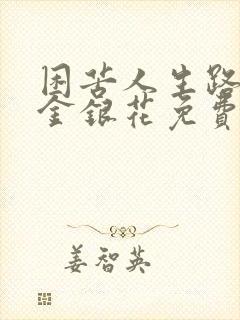 困苦人生路
金银花免費
姜智英